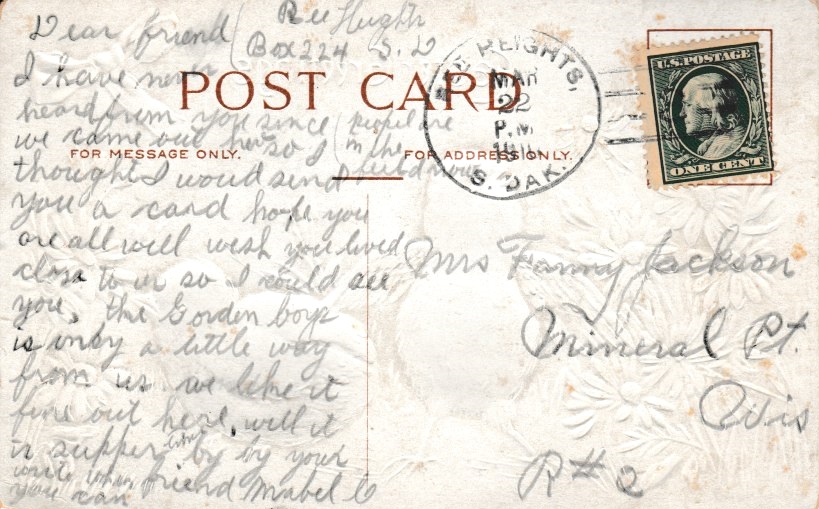 Ree Heights
Box 224 S. D
Dear friend
I have never
heard from you since
we came out here so I
thought I would send
you a card hope you
are all well wish you lived
close to us so I could see
you, the Gorden boys
is only a little way
from us we like it
fine out here, will it
is supper time by by your
write when friend Mabel C
you can
people are
in the
POST CARD
FOR MESSAGE ONLY.
FOR ADDRESS ONLY.
REE HEIGHTS,
MAR
22
P.M
S. DAK.
U.S. POSTAGE
ONE CENT
Mrs Fanny Jackson
Mineral Pt.
Wis
R # 2